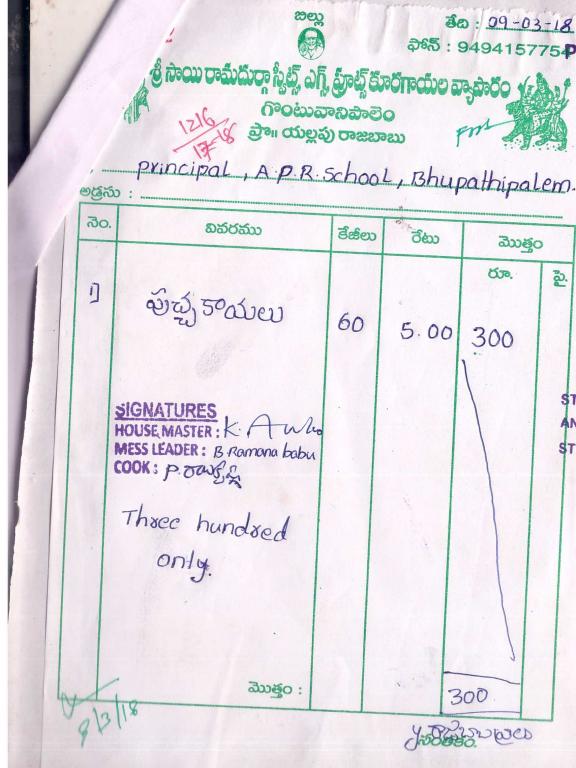 బిల్లు
తేది : 09-03-18
ఫోన్ : 9494157754
శ్రీ సాయి రామదుర్గా స్వీట్స్, ఎగ్స్, ఫ్రూట్స్ కూరగాయల వ్యాపారం
గొంటువానిపాలెం
ప్రొ॥ యల్లపు రాజబాబు
1216
17-18
principal, A.P.R. School, Bhupathipalem.
అడ్రసు :
నెం. వివరము కేజీలు రేటు మొత్తం
రూ. పై.
1) పుచ్చకాయలు 60 5.00 300
SIGNATURES
HOUSE MASTER : K.
MESS LEADER : B Ramana babu
COOK : P.
Three hundred
only.
మొత్తం : 300
9/3/18
సంతకం.